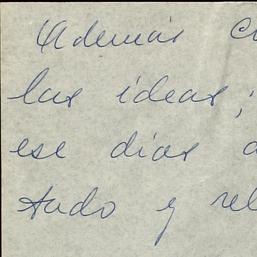 Además
las ideas;
ese dias
tudo y rel